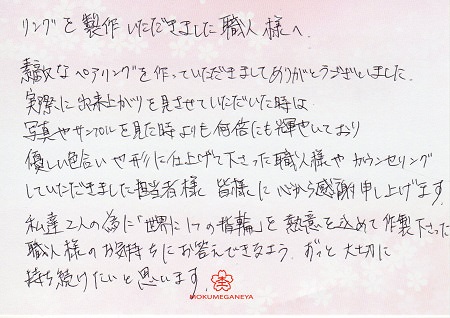 リングを製作いただきました職人様へ
素敵なペアリングを作っていただきましてありがとうございました。
実際に出来上がりを見させていただいた時は
写真やサンプルを見た時よりも何倍にも輝やいており
優しい色合いや形に仕上げて下さった職人様やカウンセリング
していただきました担当者様 皆様に心から感謝申し上げます。
私達2人の為に「世界に1つの指輪」を熱意を込めて作製下さった
職人様のお気持ちにお答えできるよう、ずっと大切に
持ち続けたいと思います。
MOKUMEGANEYA